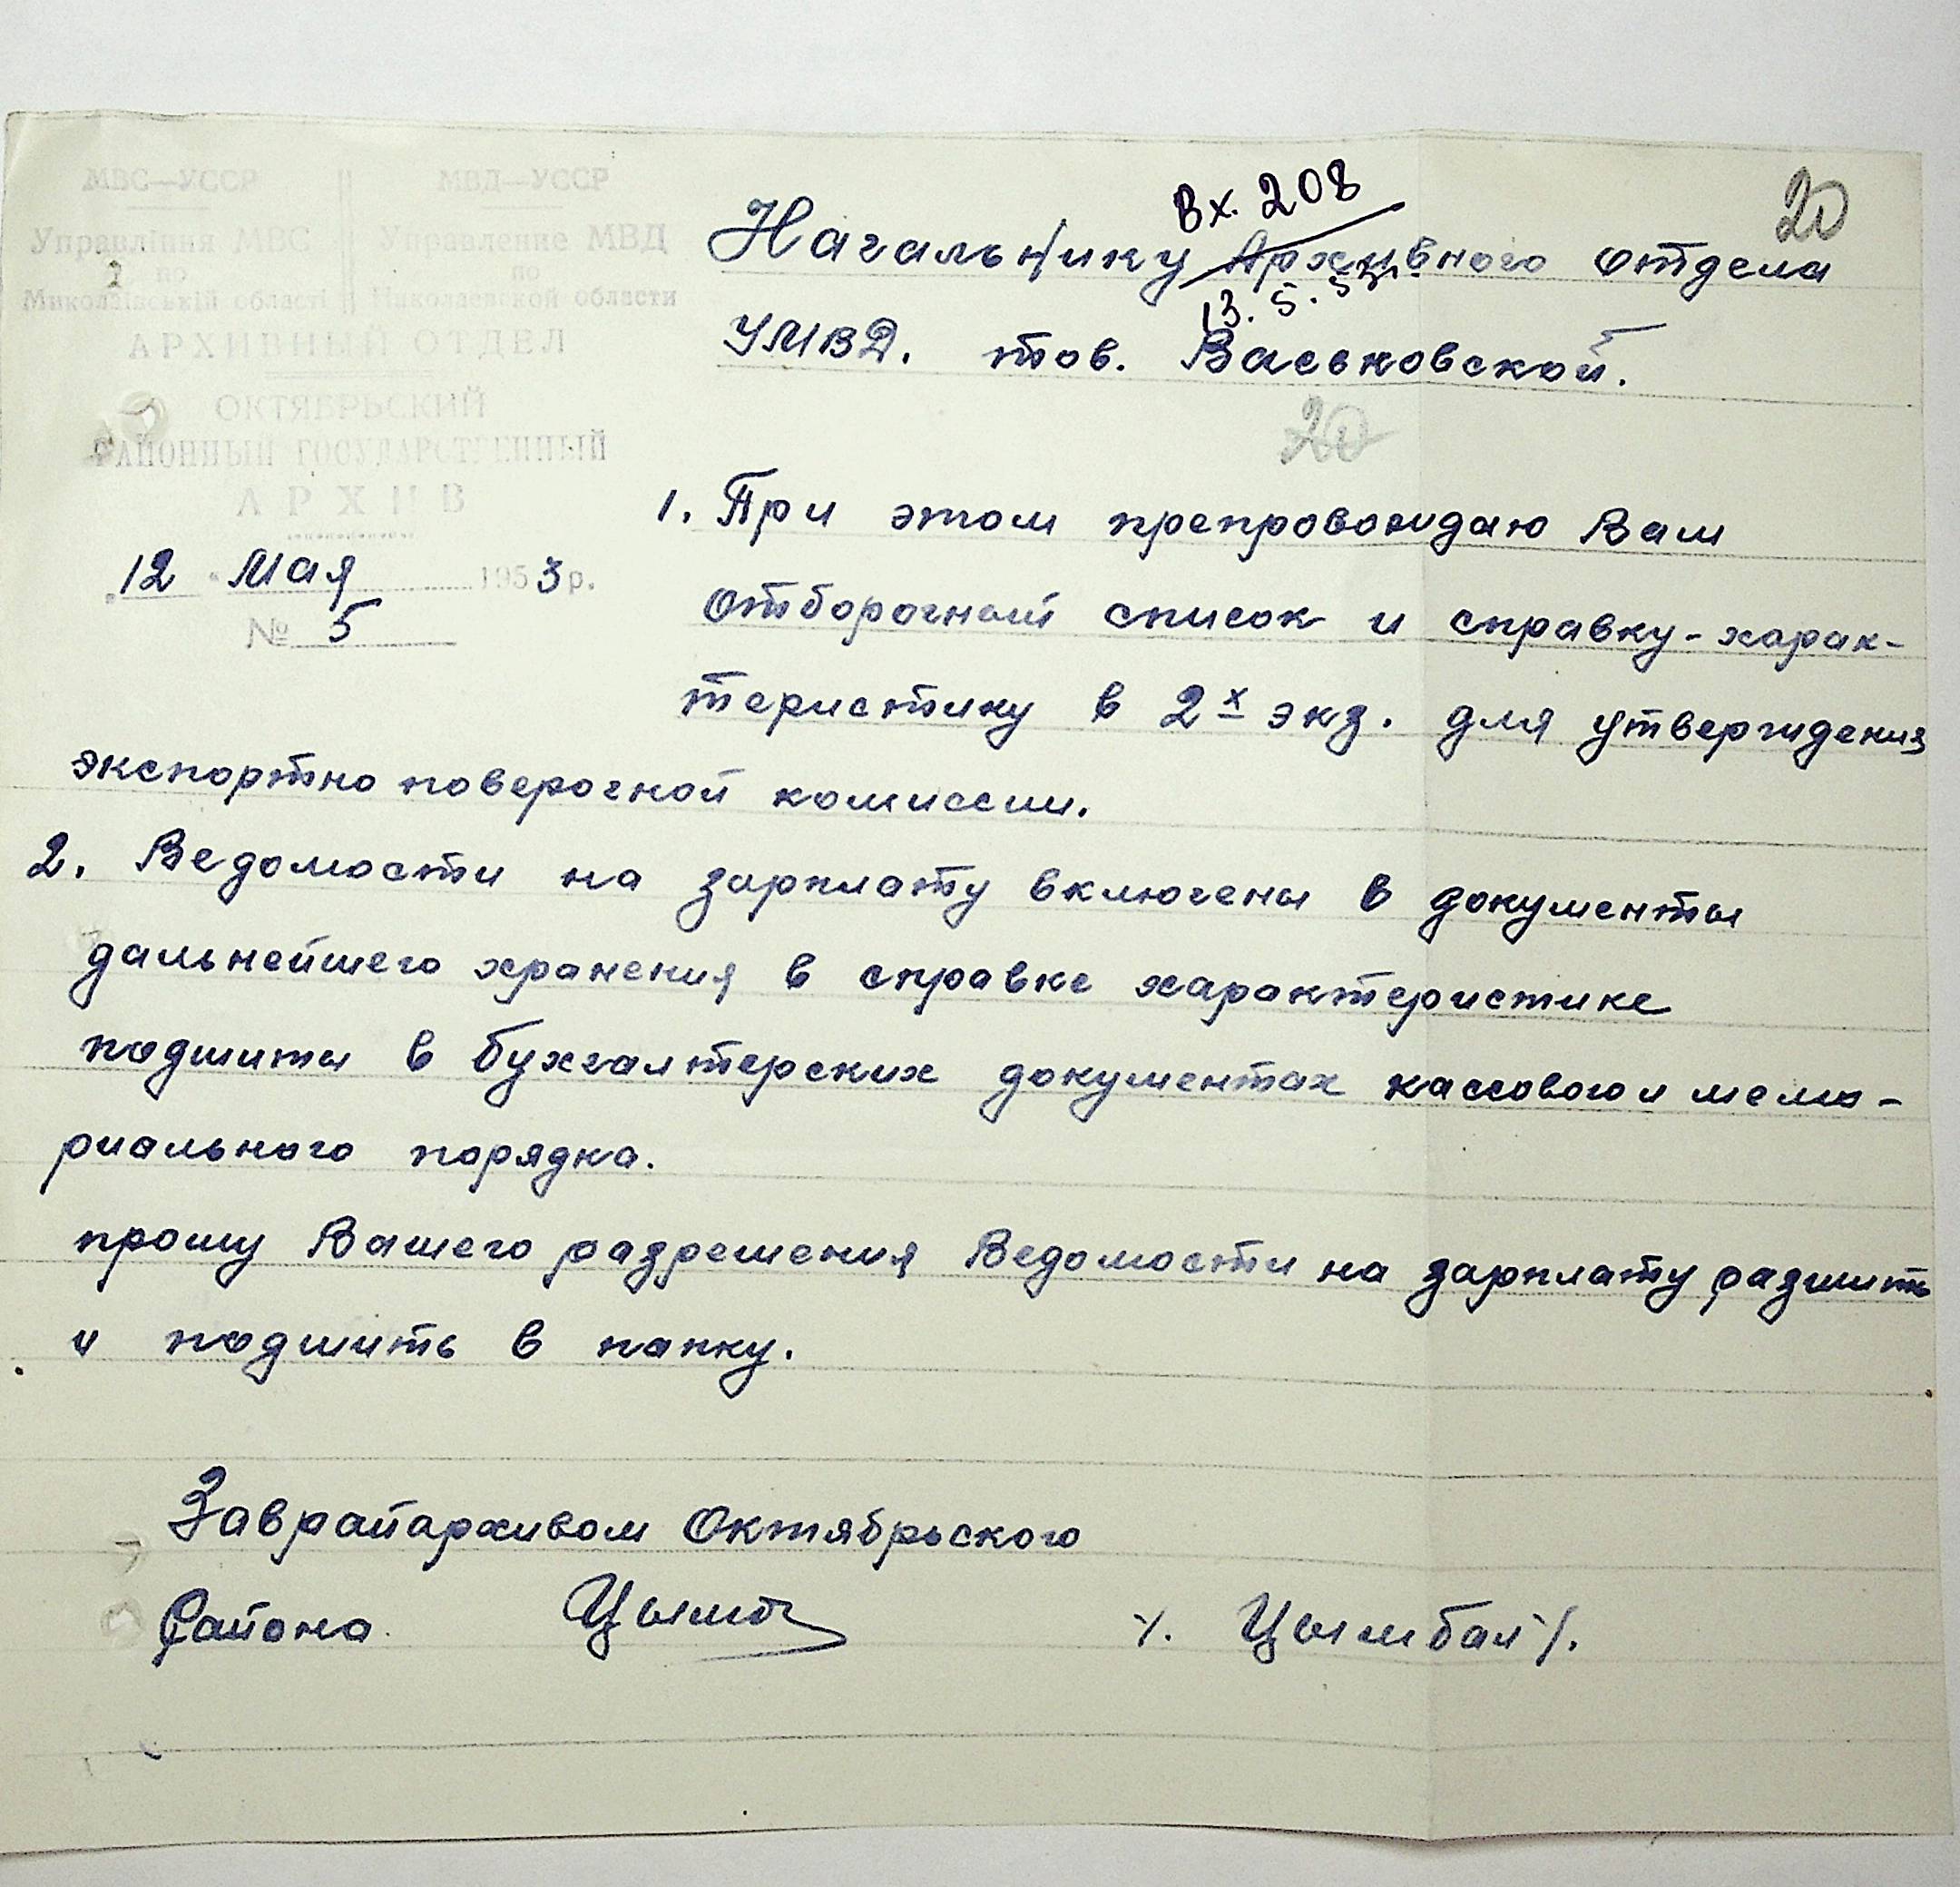 МВС—УССР
Управління МВС
по
Миколаївській області
МВД—УССР
Управление МВД
по
Николаевской области
АРХИВНЫЙ ОТДЕЛ
ОКТЯБРЬСКИЙ
РАЙОННЫЙ ГОСУДАРСТВЕННЫЙ
АРХИВ
„12 " Мая 1953 р.
№ 5
Вх. 208
13. 5. 53
20
Начальнику Архивного отдела
УМВД. тов. Васьковской.
20
1. При этом препровождаю Вам
отборочный список и справку-харак-
теристику в 2х экз. для утверждения
экспортно поверочной комиссии.
2. Ведомости на зарплату включены в документы
дальнейшего хранения в справке характеристике
подшиты в бухгалтерских документах кассового и мемо-
риального порядка.
прошу Вашего разрешения Ведомости на зарплату расшить
и подшить в папку.
Заврайархивом Октябрьского
Района Цымб /. Цымбал /.